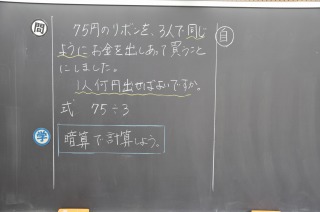 問
75円のリボンを、3人で同じ
ようにお金を出しあって買うこと
にしました。
1人何円出せばよいですか。
式 75÷3
学
暗算で計算しよう。
自